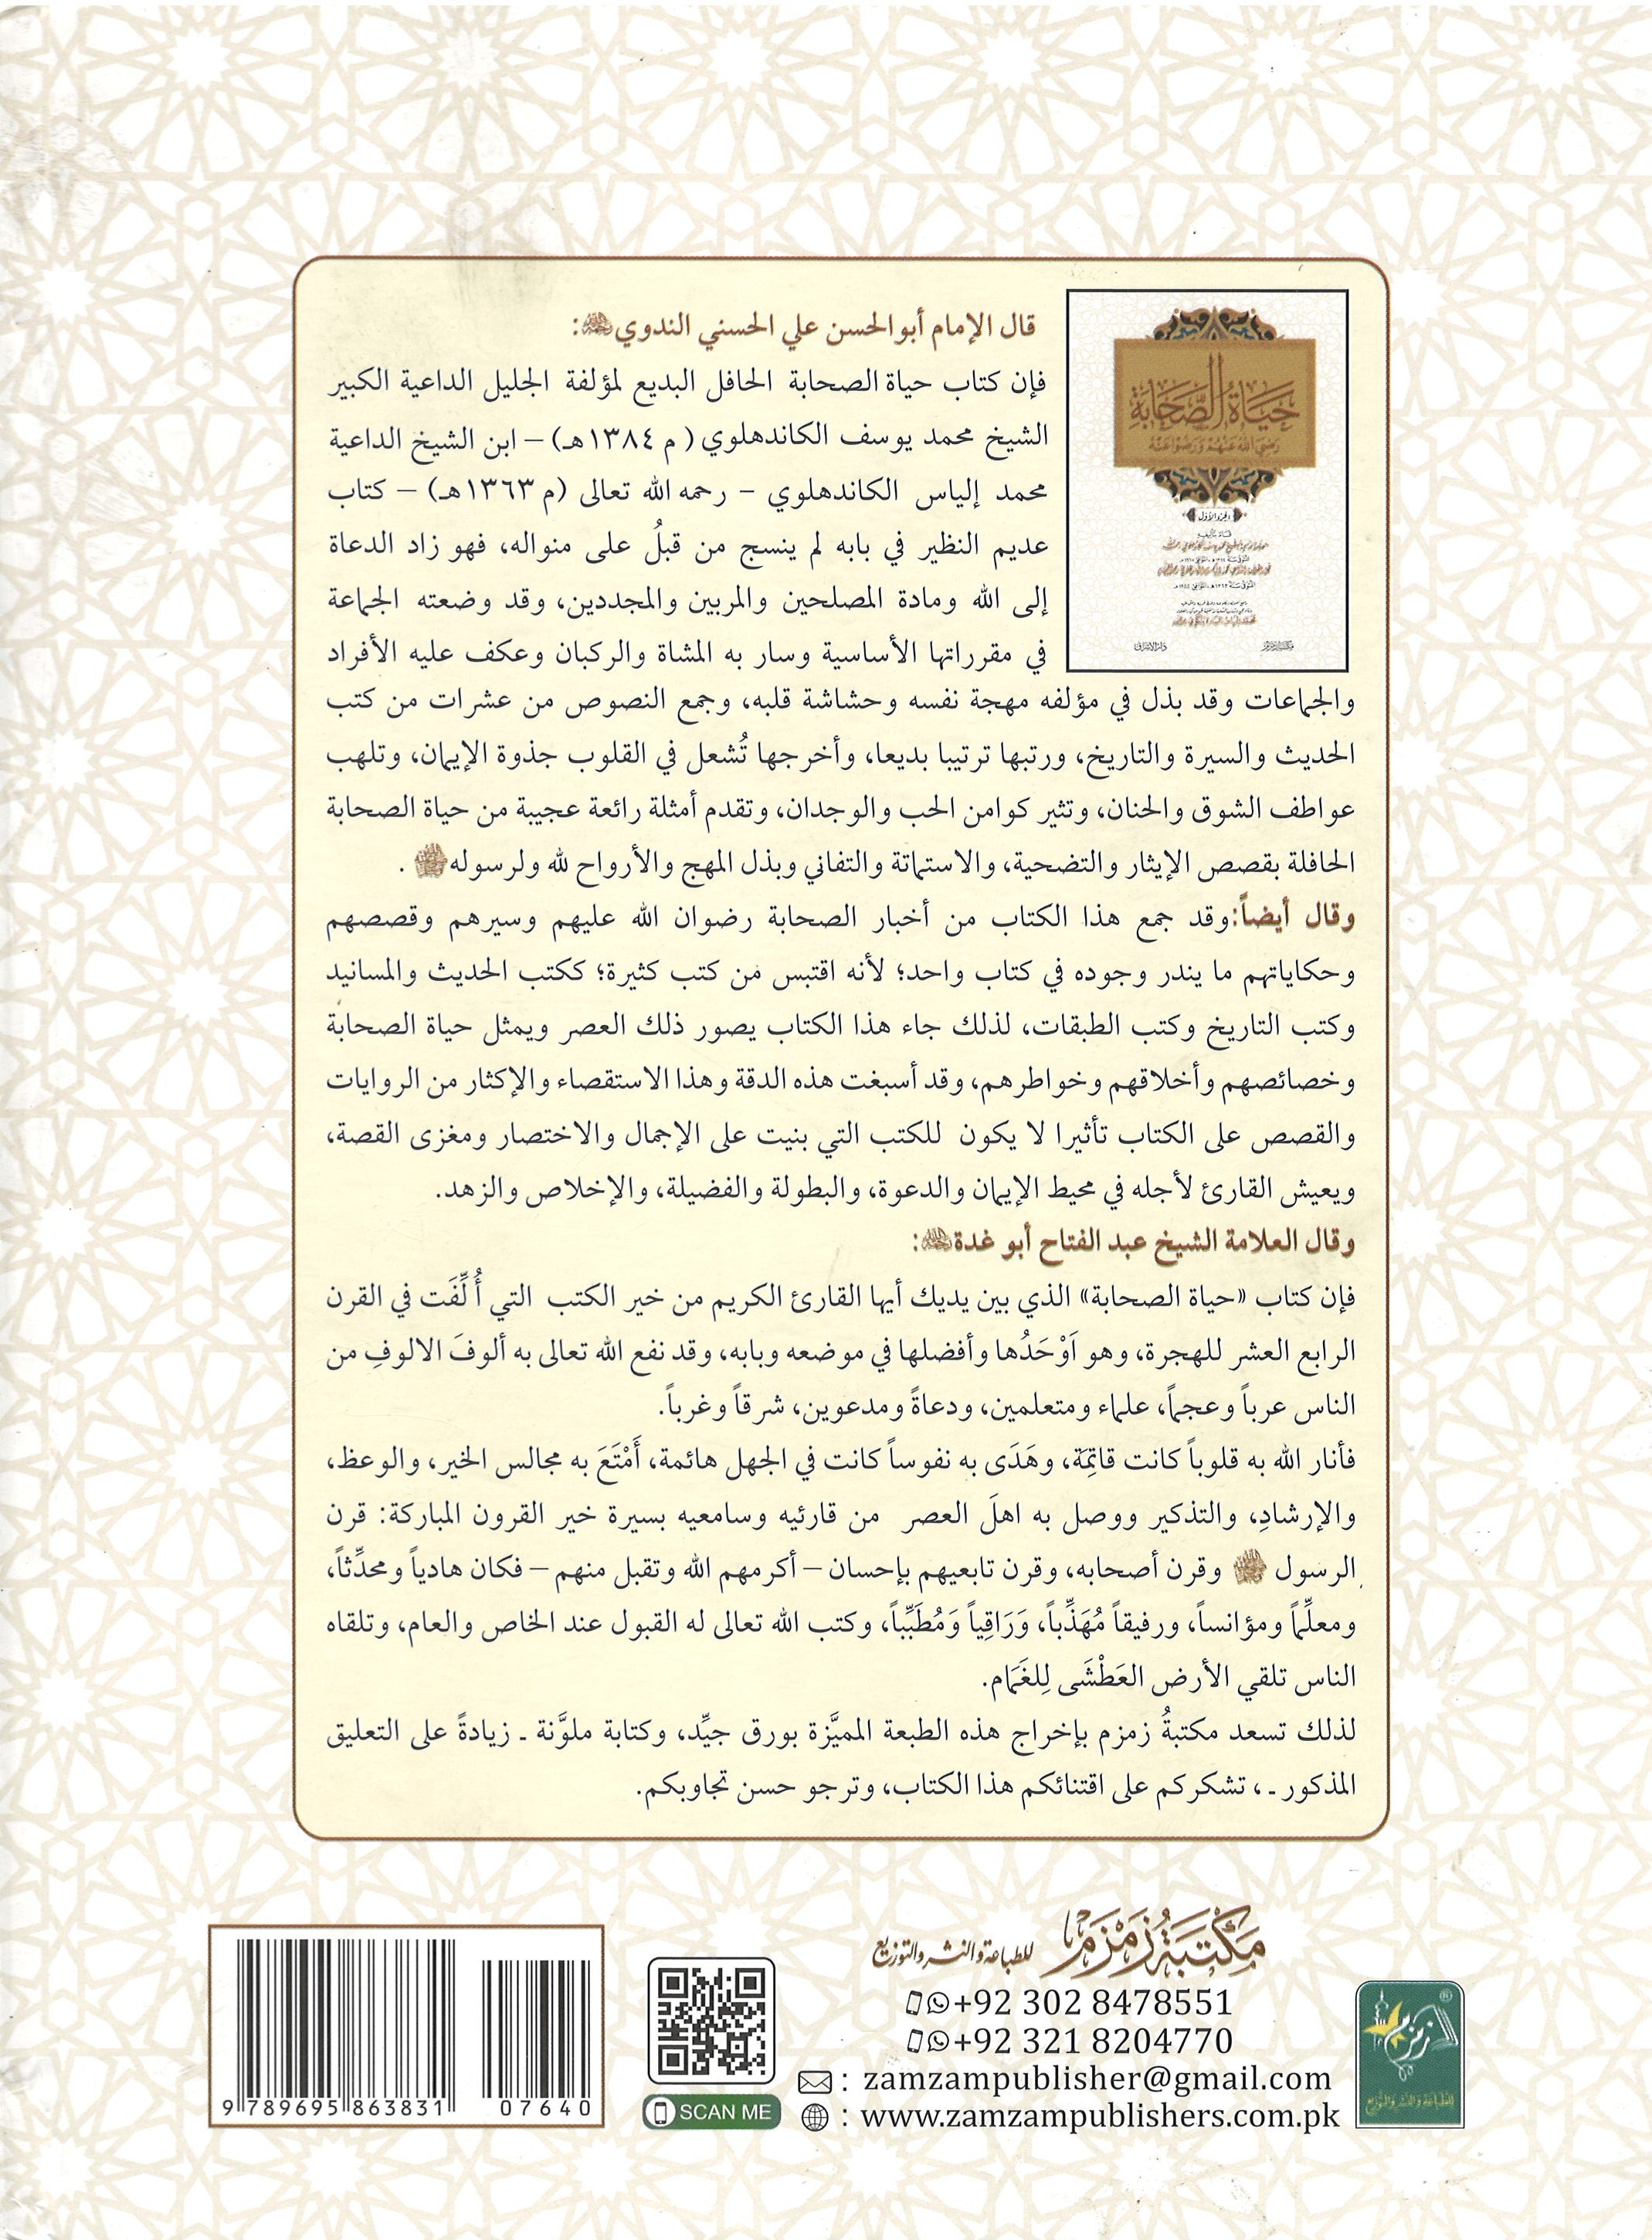 حَيَاةُ الصَّحَابَةِ
الجزء الأول
قال الإمام أبو الحسن علي الحسني الندوي رحمه الله:
فإن كتاب حياة الصحابة الحافل البديع لمؤلفة الجليل الداعية الكبير
الشيخ محمد يوسف الكاندهلوي ( م ١٣٨٤هـ) – ابن الشيخ الداعية
محمد إلياس الكاندهلوي - رحمه الله تعالى (م ١٣٦٣هـ) – كتاب
عديم النظير في بابه لم ينسج من قبلُ على منواله، فهو زاد الدعاة
إلى الله ومادة المصلحين والمربين والمجددين، وقد وضعته الجماعة
في مقرراتها الأساسية وسار به المشاة والركبان وعكف عليه الأفراد
والجماعات وقد بذل في مؤلفه مهجة نفسه وحشاشة قلبه، وجمع النصوص من عشرات من كتب
الحديث والسيرة والتاريخ، ورتبها ترتيبا بديعا، وأخرجها تُشعل في القلوب جذوة الإيمان، وتلهب
عواطف الشوق والحنان، وتثير كوامن الحب والوجدان، وتقدم أمثلة رائعة عجيبة من حياة الصحابة
الحافلة بقصص الإيثار والتضحية، والاستماتة والتفاني وبذل المهج والأرواح لله ولرسوله ﷺ .
وقال أيضاً:وقد جمع هذا الكتاب من أخبار الصحابة رضوان الله عليهم وسيرهم وقصصهم
وحكاياتهم ما يندر وجوده في كتاب واحد؛ لأنه اقتبس من كتب كثيرة؛ ككتب الحديث والمسانيد
وكتب التاريخ وكتب الطبقات، لذلك جاء هذا الكتاب يصور ذلك العصر ويمثل حياة الصحابة
وخصائصهم وأخلاقهم وخواطرهم، وقد أسبغت هذه الدقة وهذا الاستقصاء والإكثار من الروايات
والقصص على الكتاب تأثيرا لا يكون للكتب التي بنيت على الإجمال والاختصار ومغزى القصة،
ويعيش القارئ لأجله في محيط الإيمان والدعوة، والبطولة والفضيلة، والإخلاص والزهد.
وقال العلامة الشيخ عبد الفتاح أبو غدة رحمه الله:
فإن كتاب «حياة الصحابة» الذي بين يديك أيها القارئ الكريم من خير الكتب التي أُلِّفَت في القرن
الرابع العشر للهجرة، وهو اَوْحَدُها وأفضلها في موضعه وبابه، وقد نفع الله تعالى به ألوفَ الالوفِ من
الناس عرباً وعجماً، علماء ومتعلمين، ودعاةً ومدعوين، شرقاً وغرباً.
فأنار الله به قلوباً كانت قاتِمَة، وهَدَى به نفوساً كانت في الجهل هائمة، أَمْتَعَ به مجالس الخير، والوعظ،
والإرشادِ، والتذكير ووصل به اهلَ العصر من قارئيه وسامعيه بسيرة خير القرون المباركة: قرن
الرسول ﷺ وقرن أصحابه، وقرن تابعيهم بإحسان – أكرمهم الله وتقبل منهم – فكان هادياً ومحدِّثاً،
ومعلِّماً ومؤانساً، ورفيقاً مُهَذِّباً، وَرَاقِياً وَمُطَبِّباً، وكتب الله تعالى له القبول عند الخاص والعام، وتلقاه
الناس تلقي الأرض العَطْشَى لِلغَمَام.
لذلك تسعد مكتبةُ زمزم بإخراج هذه الطبعة المميَّزة بورق جيِّد، وكتابة ملوَّنة ـ زيادةً على التعليق
المذكور ـ ، تشكركم على اقتنائكم هذا الكتاب، وترجو حسن تجاوبكم.
مَكْتَبَةُ زَمْزَمْ للطباعة والنشر والتوزيع
+92 302 8478551
+92 321 8204770
: zamzampublisher@gmail.com
: www.zamzampublishers.com.pk
زمزم
®
للطباعة والنشر والتوزيع
SCAN ME
9 789695 863831
07640